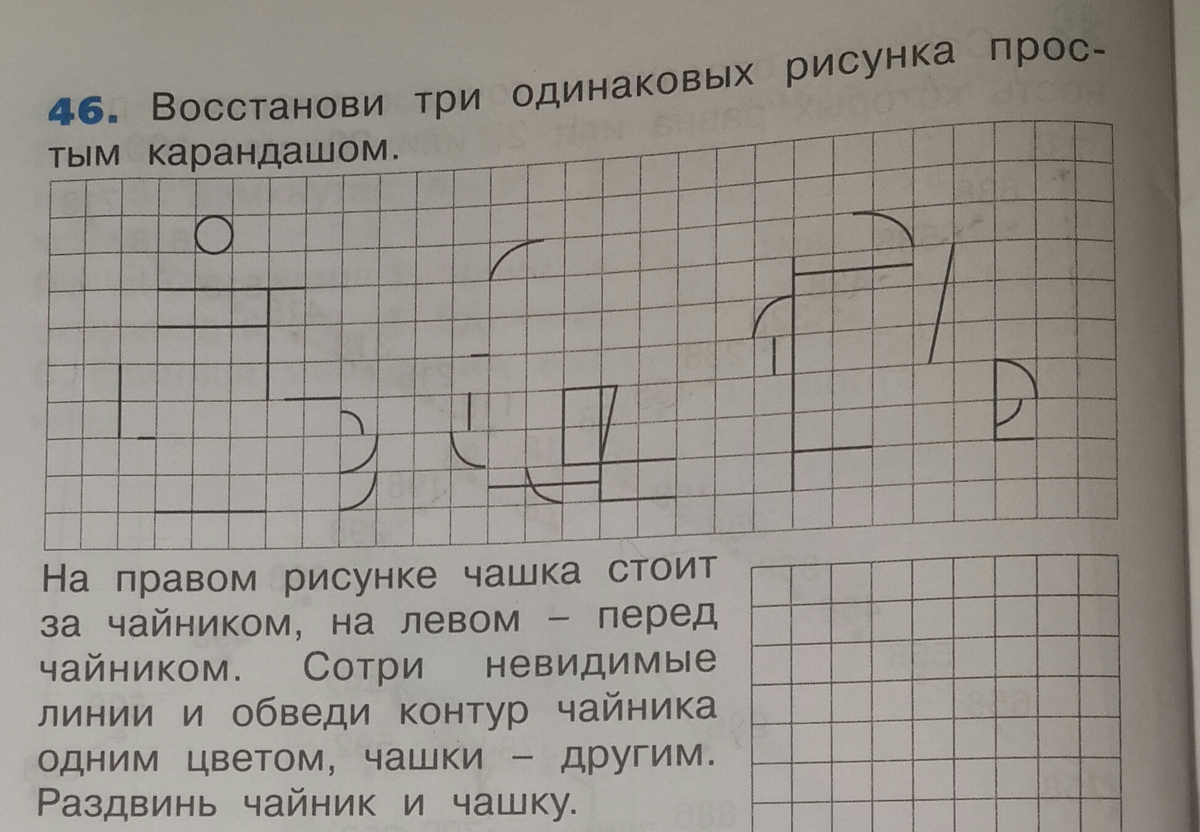 46. Восстанови три одинаковых рисунка прос-
тым карандашом.
На правом рисунке чашка стоит
за чайником, на левом – перед
чайником. Сотри невидимые
линии и обведи контур чайника
одним цветом, чашки – другим.
Раздвинь чайник и чашку.